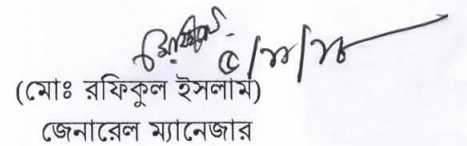 (মোঃ রফিকুল ইসলাম)
জেনারেল ম্যানেজার